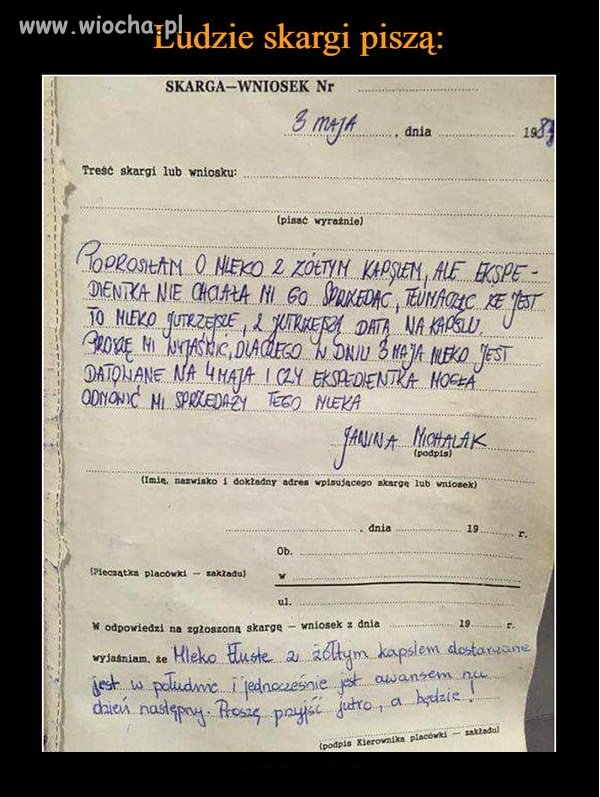 www.wiocha.pl
Ludzie skargi piszą:
SKARGA—WNIOSEK Nr
3 MAJA, dnia 1983
Treść skargi lub wniosku:
(pisać wyraźnie)
POPROSIŁAM O MLEKO Z ŻÓŁTYM KAPSLEM, ALE EKSPE-
DIENTKA NIE CHCIAŁA MI GO SPRZEDAĆ, TŁUMACZĄC ŻE JEST
TO MLEKO JUTRZEJSZE, Z JUTRZEJSZĄ DATĄ NA KAPSLU.
PROSZĘ MI WYJAŚNIĆ, DLACZEGO W DNIU 3 MAJA MLEKO JEST
DATOWANE NA 4 MAJA I CZY EKSPEDIENTKA MOGŁA
ODMÓWIĆ MI SPRZEDAŻY TEGO MLEKA
JANINA MICHALAK
(podpis)
(Imię, nazwisko i dokładny adres wpisującego skargę lub wniosek)
, dnia 19 r.
Ob.
(Pieczątka placówki — zakładu) w
ul.
W odpowiedzi na zgłoszoną skargę — wniosek z dnia 19 r.
wyjaśniam, że Mleko tłuste z żółtym kapslem dostarczane
jest w południe i jednocześnie jest awansem na
dzień następny. Proszę przyjść jutro, a będzie!
(podpis Kierownika placówki — zakładu)